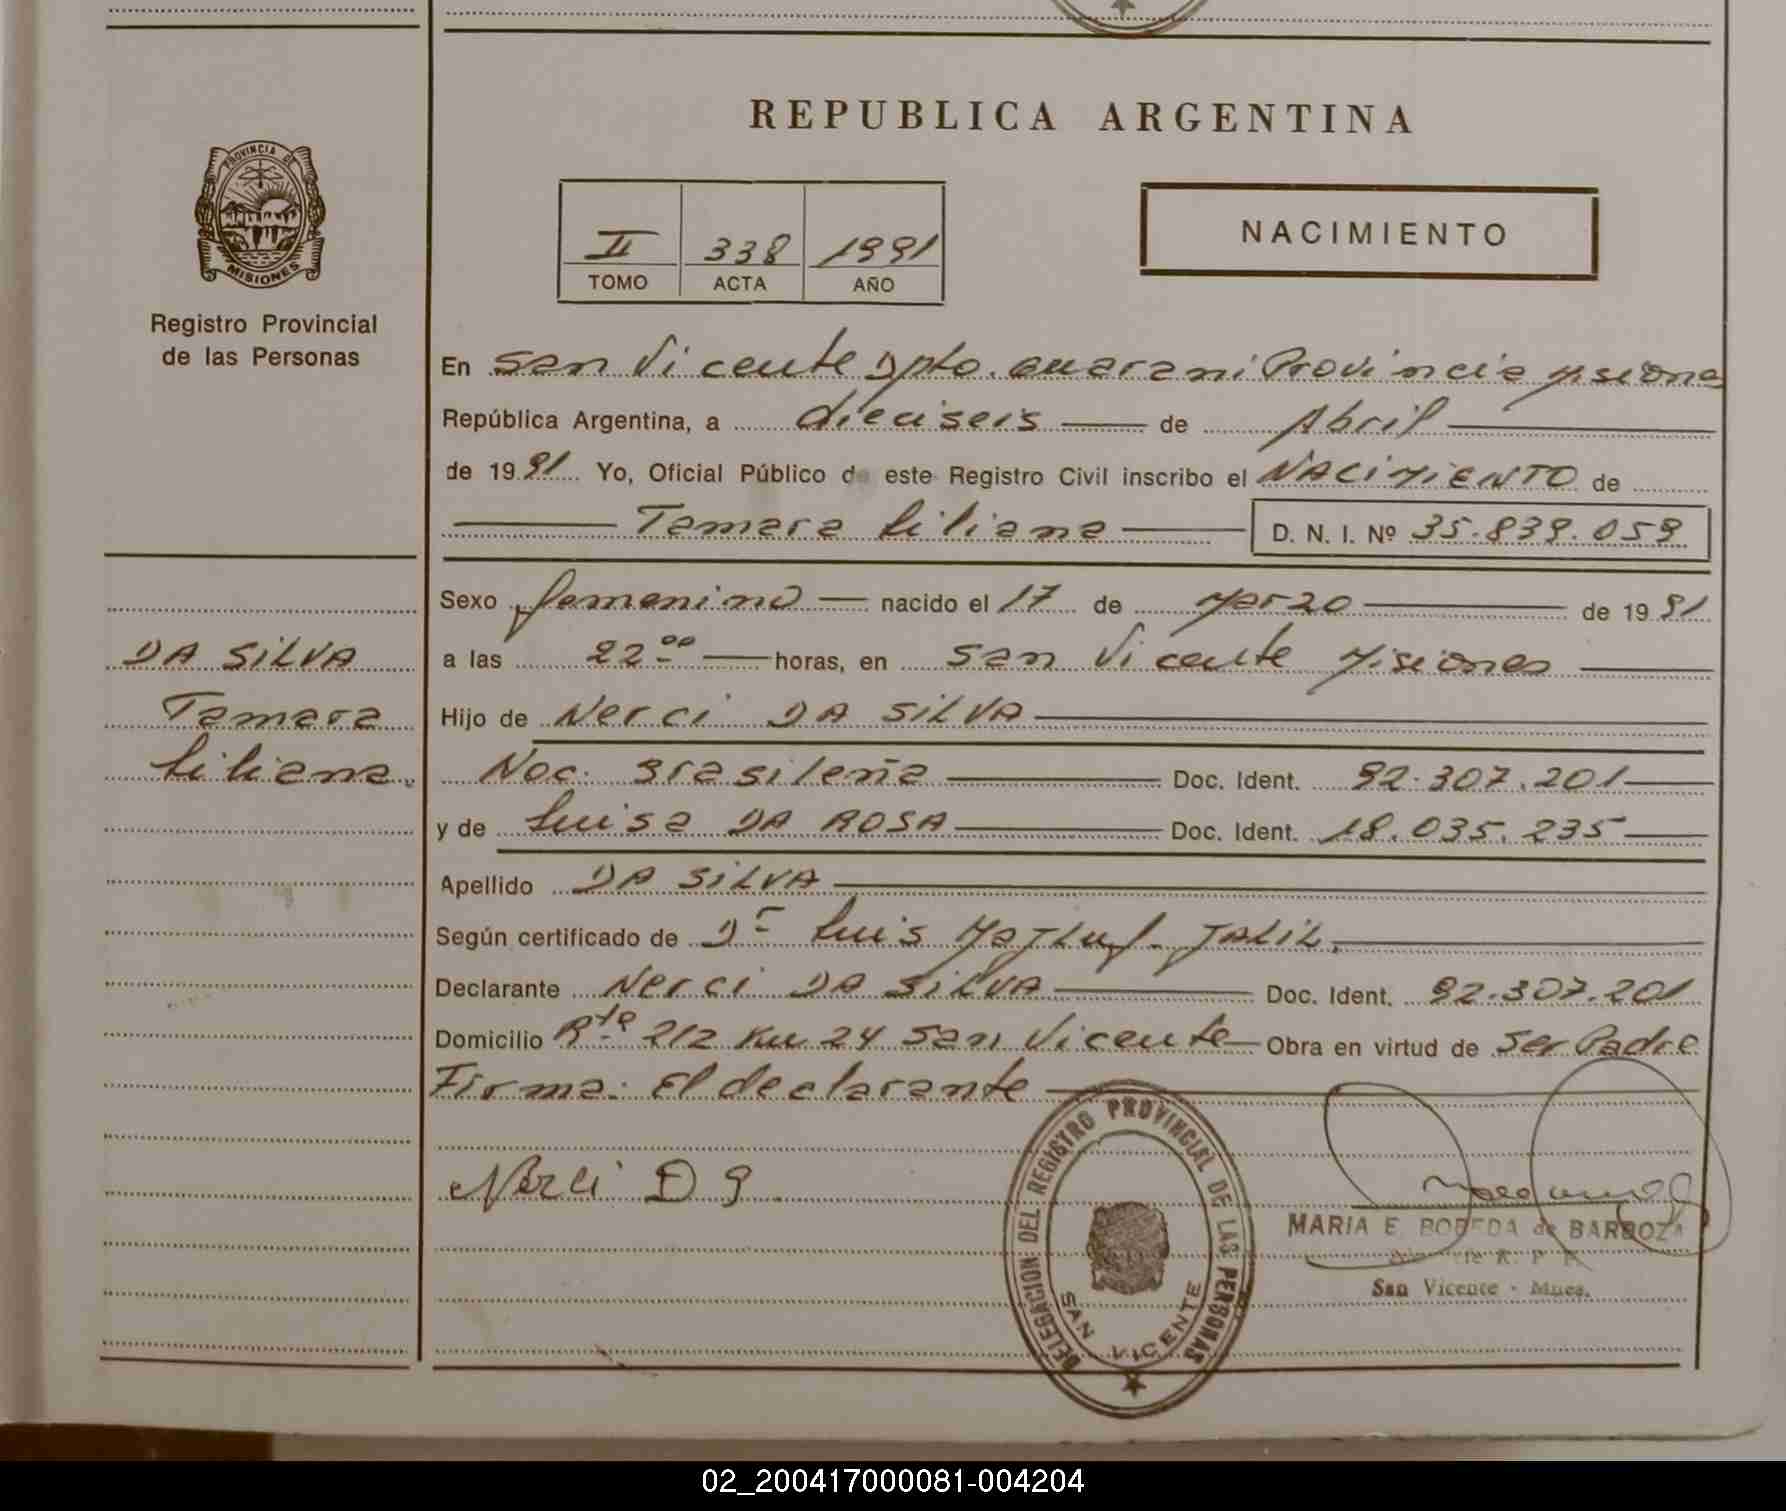 REPUBLICA ARGENTINA
PROVINCIA DE
MISIONES
Registro Provincial
de las Personas
II 338 1991
TOMO ACTA AÑO
NACIMIENTO
En San Vicente Dpto. Guarani Provincia Misiones
República Argentina, a dieciseis de Abril
de 1991 Yo, Oficial Público de este Registro Civil inscribo el NACIMIENTO de
Tamara Liliana D. N. I. Nº 35.839.059
Sexo femenino nacido el 17 de Marzo de 1991
a las 22 00 horas, en San Vicente Misiones
Hijo de Nerci DA SILVA
Nac. Brasileña Doc. Ident. 92.307.201
y de Luisa DA ROSA Doc. Ident. 18.035.235
Apellido DA SILVA
Según certificado de Dr Luis JALIL.
Declarante Nerci DA SILVA Doc. Ident. 92.307.201
Domicilio Rta 212 Km 24 San Vicente Obra en virtud de Ser Padre
Firma: El declarante
DA SILVA
Tamara
Liliana.
Nerci D S
DELEGACION DEL REGISTRO PROVINCIAL DE LAS PERSONAS
SAN VICENTE
MARIA E. BOBEDA de BARBOZA
R. P. P.
San Vicente - Mnes.
02_200417000081-004204